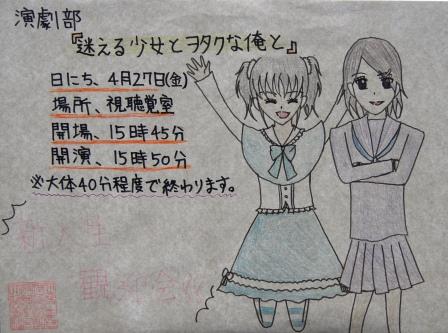 演劇部
『迷える少女とヲタクな俺と』
日にち、4月27日(金)
場所、視聴覚室
開場、15時45分
開演、15時50分
※大体40分程度で終わります。
新入生